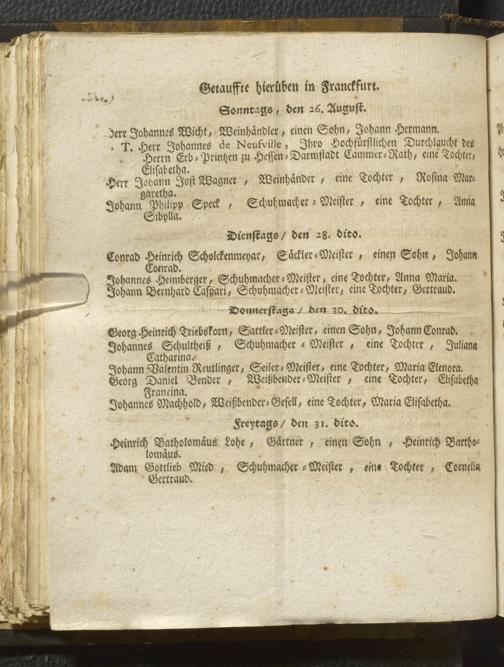 Getauffte hierüben in Franckfurt.
Sonntags, den 26. August.
Herr Johannes Wicht, Weinhändler, einen Sohn, Johann Hermann.
T. Herr Johannes de Neufville, Ihro Hochfürstlichen Durchlaucht des
Herrn Erb-Printzen zu Hessen-Darmstadt Cammer-Rath, eine Tochter,
Elisabetha.
Herr Johann Jost Wagner, Weinhänder, eine Tochter, Rosina Mar-
garetha.
Johann Philipp Speck, Schuhmacher-Meister, eine Tochter, Anna
Sibylla.
Dienstags / den 28. dito.
Conrad Heinrich Scholckenmeyar, Säckler-Meister, einen Sohn, Johann
Conrad.
Johannes Heimberger, Schuhmacher-Meister, eine Tochter, Anna Maria.
Johann Bernhard Caspari, Schuhmacher-Meister, eine Tochter, Gertraud.
Donnerstags / den 30. dito.
Georg Heinrich Triebskorn, Sattler-Meister, einen Sohn, Johann Conrad.
Johannes Schultheiß, Schuhmacher-Meister, eine Tochter, Juliana
Catharina.
Johann Valentin Reutlinger, Seiler-Meister, eine Tochter, Maria Elenora.
Georg Daniel Bender, Weißbender-Meister, eine Tochter, Elisabetha
Francina.
Johannes Machhold, Weißbender-Gesell, eine Tochter, Maria Elisabetha.
Freytags / den 31. dito.
Heinrich Batholomäus Lohe, Gärtner, einen Sohn, Heinrich Bartho-
lomäus.
Adam Gottlieb Mied, Schuhmacher-Meister, eine Tochter, Cornelia
Gertraud.